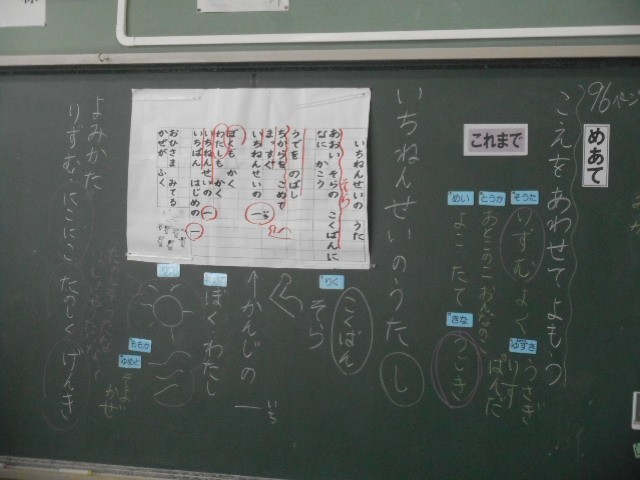 96ページ
めあて
こえをあわせてよもう
これまで
そうた
りずむよく
とうか
めい
よこ たて
きな
うごき
ゆずき
うさぎ
りす
ぱんだ
いちねんせいのうた
し
いちねんせいの うた
あおい そらの こくばんに
なに かこう
うでを のばし
ちからを こめて
まっすぐ
いちねんせいの 一
ぼくも かく
わたしも かく
いちねんせいの 一
いちばん はじめの 一
おひさま みてる
かぜが ふく
りく
こくばん
そら
↑かんじの 一
いち
ぼく わたし
ももか
ゆめと
かぜ
よみかた
りずむ にこにこ たのしく げんき